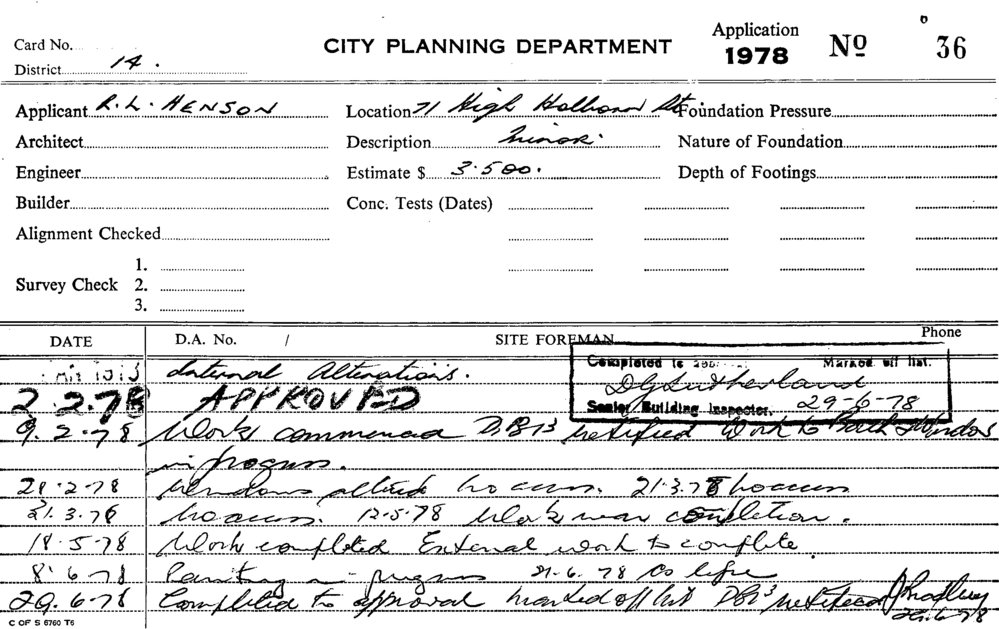 Card No.
CITY PLANNING DEPARTMENT
Application
1978
Nº 36
District 14.
Applicant R.L. HENSON
Location 71 High Holborn St.
Foundation Pressure
Architect
Description Minor.
Nature of Foundation
Engineer
Estimate $ 3.500.
Depth of Footings
Builder
Conc. Tests (Dates)
Alignment Checked
Survey Check
1.
2.
3.
DATE
D.A. No. /
SITE FOREMAN
Phone
Internal Alterations.
Completed to Marked off list.
DGSutherland
Senior Building Inspector. 29-6-78
2.2.78 APPROVED
9.2.78 Work commenced notified Work to Bath Windows
in progress.
21.2.78 Windows altered no access. 21.3.78 no access
21.3.78 No access. 12.5.78 Work near completion.
18.5.78 Work completed External work to complete.
8.6.78 Painting in progress 21.6.78
29.6.78 Completed to approval marked off list notified
29.6.78
C OF S 6760 T6